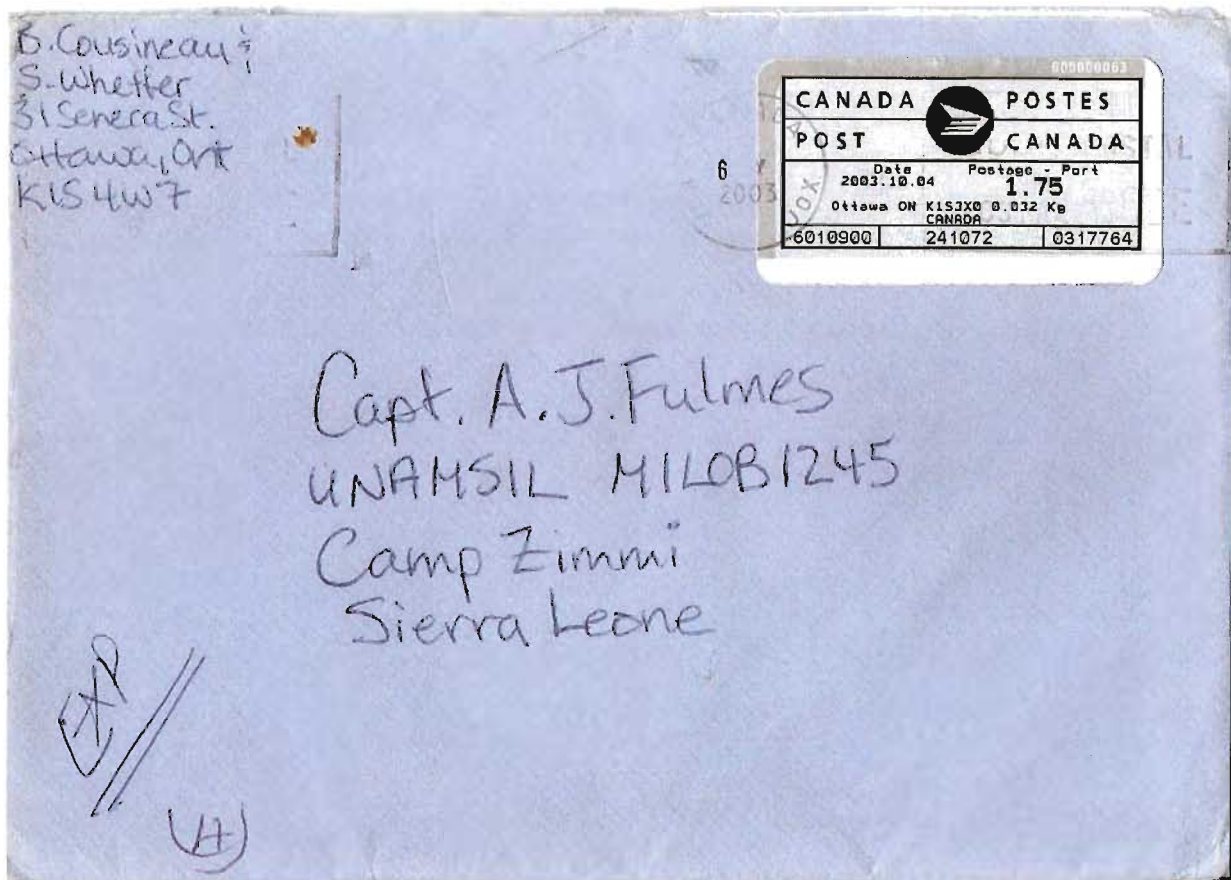 B. Cousineau &
S. Whetter
31 Senera St.
Ottawa, Ont
K1S 4W7
600000063
CANADA POSTES
POST CANADA
Date Postage - Port
2003.10.04 1.75
Ottawa ON K1S3X0 0.032 Kg
CANADA
6010900 241072 0317764
6
2003
Capt. A. J. Fulmes
UNAMSIL MILOB1245
Camp Zimmi
Sierra Leone
EXP